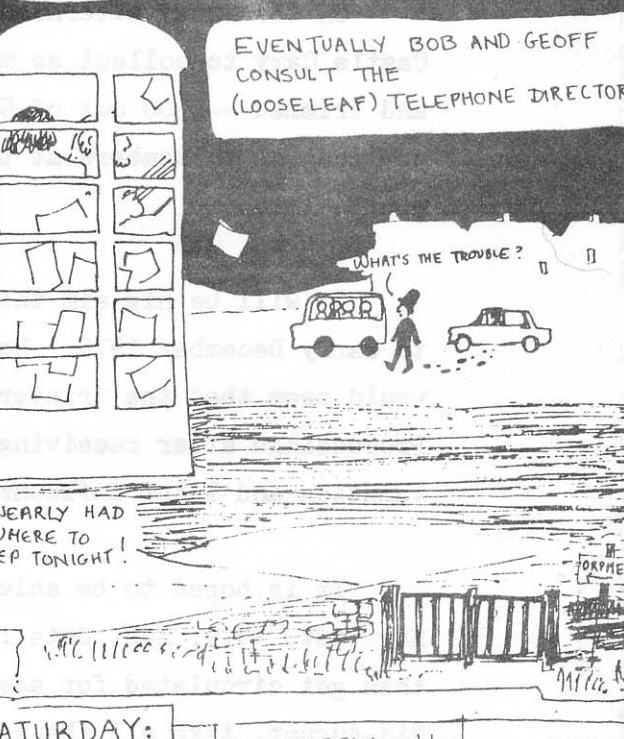 EVENTUALLY BOB AND GEOFF
CONSULT THE
(LOOSELEAF) TELEPHONE DIRECTOR
WHAT'S THE TROUBLE?
NEARLY HAD
WHERE TO
EP TONIGHT!
ORPHE
ATURDAY: